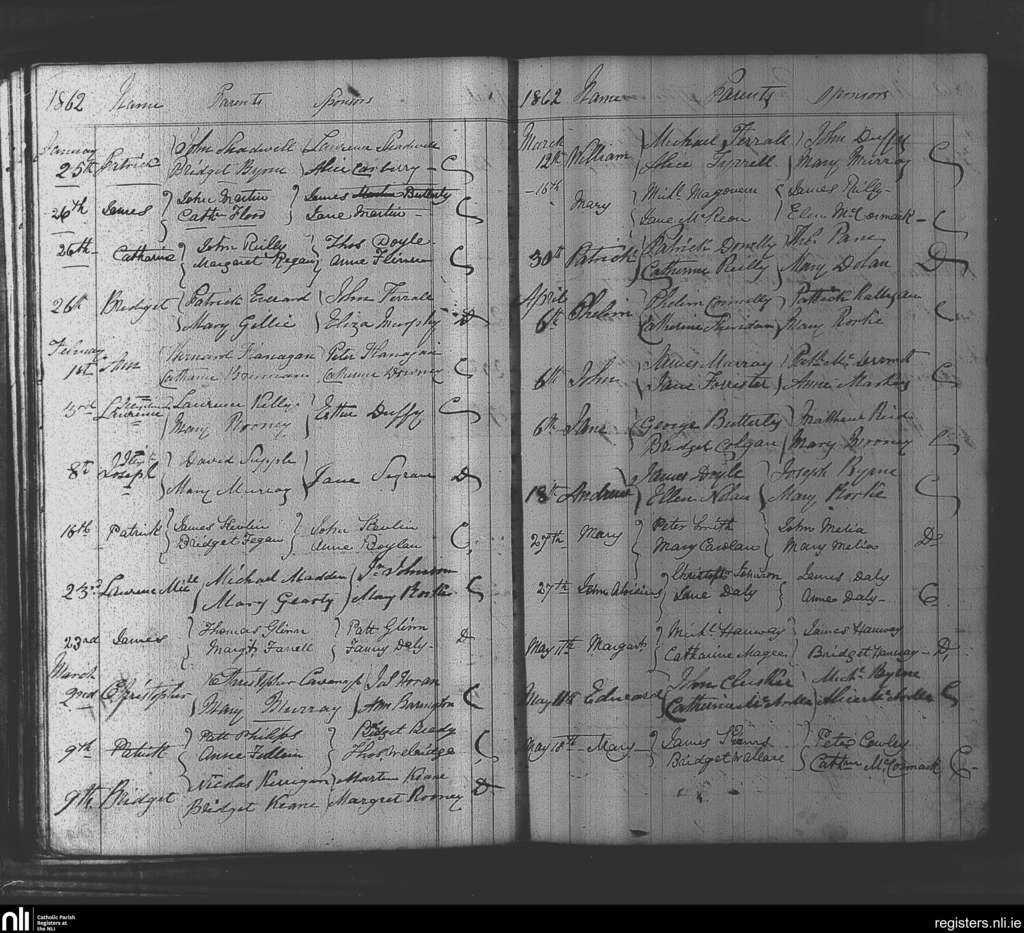 1862 Name Parents Sponsors
January
25th Patrick John Shadwell Laurence Shadwell
Bridget Byrne Alice Canberry C
26th James John Martin James Butterly
Cathn Flood Jane Martin C
26th Catharine John Reilly Thos Doyle
Margaret Regan Anne Flinn C
26th Bridget Patrick Everard John Ferrall
Mary Gillic Eliza Murphy D
February
1st Ann Bernard Flanagan Peter Flanagan
Catharine Catherine Downey C
3rd Laurence Laurence Kelly Esther Duffy C
Mary Rooney
8th Joseph David Supple Jane D
Mary Murray
16th Patrick James Kevlin John Kevlin
Bridget Fegan Anne Boylan C
23rd Laurence Michl Michael Madden Jn Johnson
Mary Gearty Mary Rorke C
23rd James Thomas Glinn Patt Glinn
Margt Farrell Fanny Daly D
March
2nd Christopher Christopher Cavanagh Jas Horan
Mary Murray Ann Barrington C
9th Patrick Patt Philips Bridget Ready
Anne Thos C
9th Bridget Nicolas Kerrigan Martin Keane
Bridget Keane Margret Rooney D
1862 Name Parents Sponsors
March
12th William Michael Ferrall John Duffy
Alice Tyrrell Mary Murray C
16th Mary Mich. Magovern James Reilly
Jane McKeon Ellen McCormack C
30th Patrick Patrick Donelly Ths.
Catherine Reilly Mary Dolan D
April
6th Phelim Phelim Connolly Patrick Halligan
Catherine Sheridan Mary Rorke C
6th John James Murray Patk McDermott
Jane Forrester Anne Martin C
6th Jane George Butterly Matthew Reid
Bridget Colgan Mary Mooney C
18th Andrew James Doyle Joseph Byrne
Ellen Nolan Mary Rorke C
27th Mary Peter Smith John Melia
Mary Carolan Mary Melia D
27th John Aloisius Christophr Fenison James Daly
Jane Daly Anne Daly C
May 11th Margart Michl Hanway James Hanway
Catharine Magee Bridget Hanway D
May 11th Edward John Cluskie Michl Byrne
Catherine Alice C
May 18th Mary James Kearns Peter Cowley
Bridget Wallace Cathn McCormack C
nli
Catholic Parish
Registers at
the NLI
registers.nli.ie